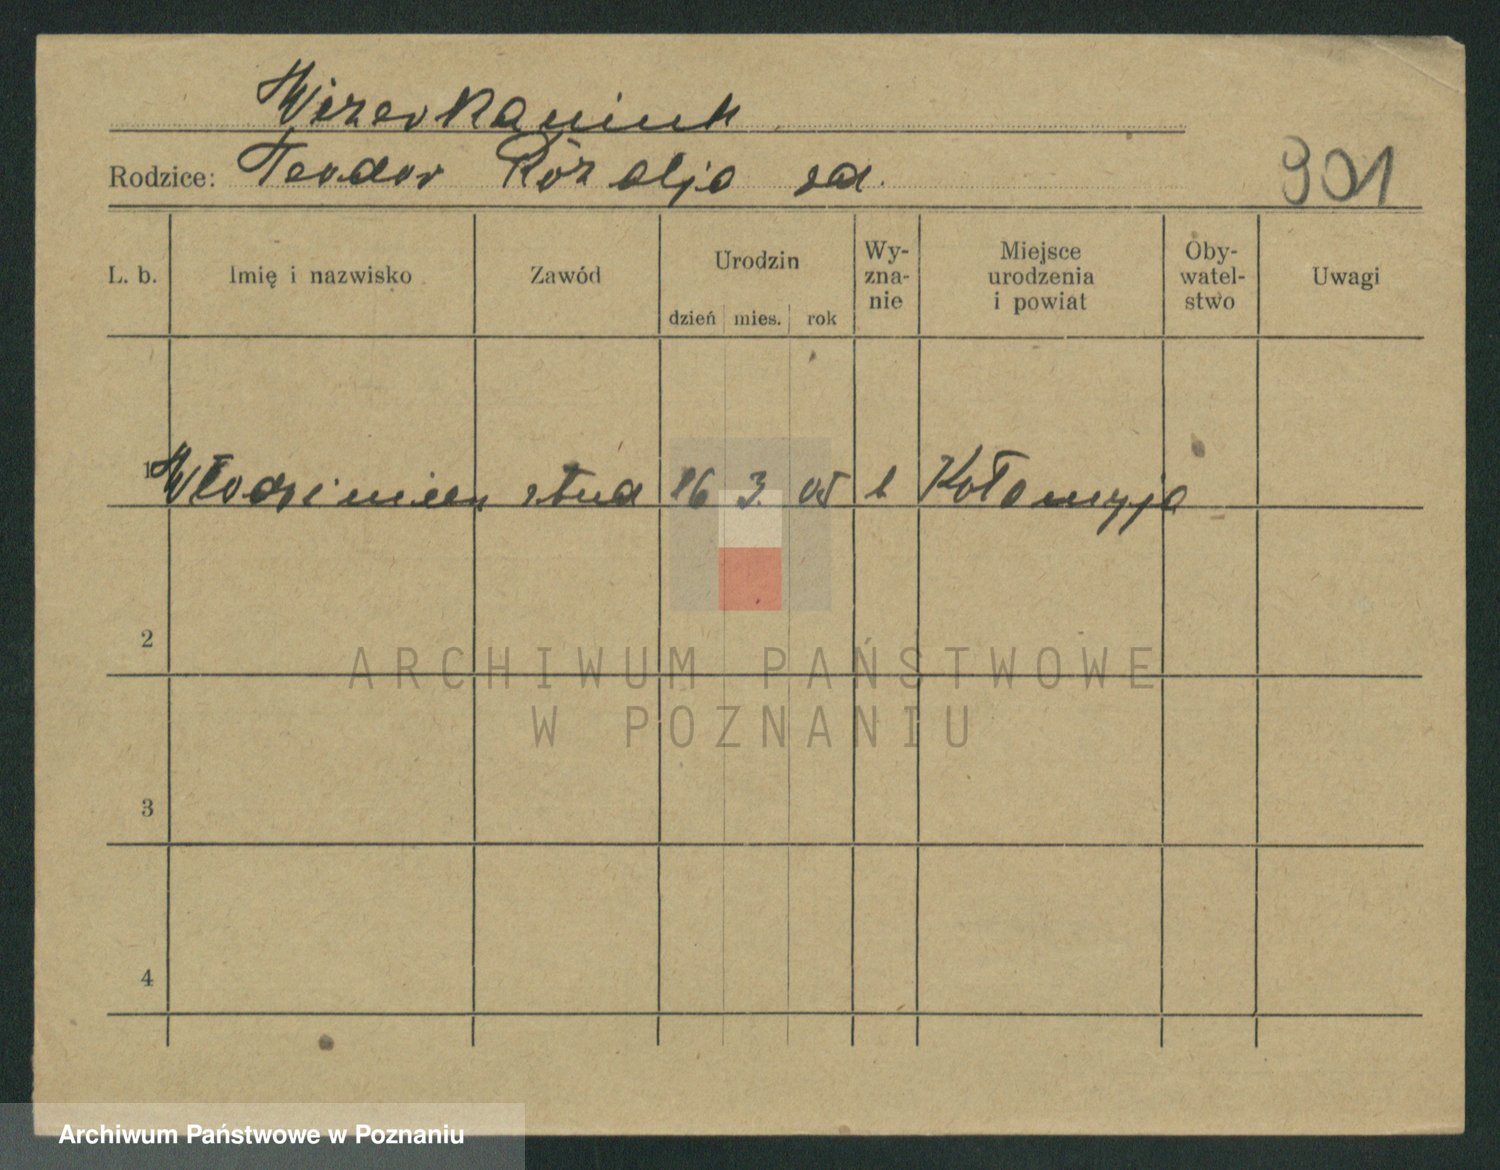 Wizerkaniuk
Rodzice: Teodor Rózalja
901
L. b. Imię i nazwisko Zawód Urodzin dzień mies. rok Wy-zna-nie Miejsce urodzenia i powiat Oby-watel-stwo Uwagi
1 Włodzimierz stud 16 3. 05 Kołomyja
2
ARCHIWUM PAŃSTWOWE
W POZNANIU
3
4
Archiwum Państwowe w Poznaniu